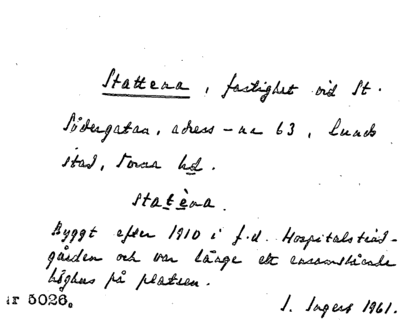 Stattena, fastighet vid St.
Södergatan, adress-nr 63, Lunds
stad, Torna hd.
statèna.
Byggt efter 1910 i f.d. Hospitalsträd-
gården och var länge ett ensamstående
höghus på platsen.
ir 5026. I. Ingers 1961.